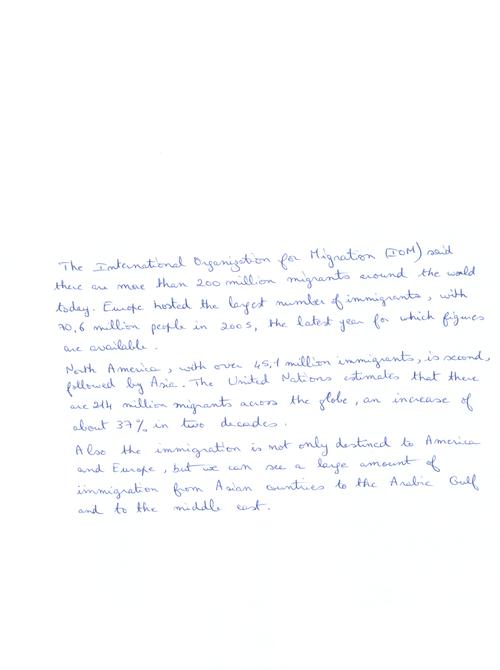 The International Organization for Migration (IOM) said
there are more than 200 million migrants around the world
today. Europe hosted the largest number of immigrants, with
70,6 million people in 2005, the latest year for which figures
are available.
North America, with over 45,1 million immigrants, is second,
followed by Asia. The United Nations estimates that there
are 214 million migrants across the globe, an increase of
about 37% in two decades.
Also the immigration is not only destined to America
and Europe, but we can see a large amount of
immigration from Asian countries to the Arabic Gulf
and to the middle east.